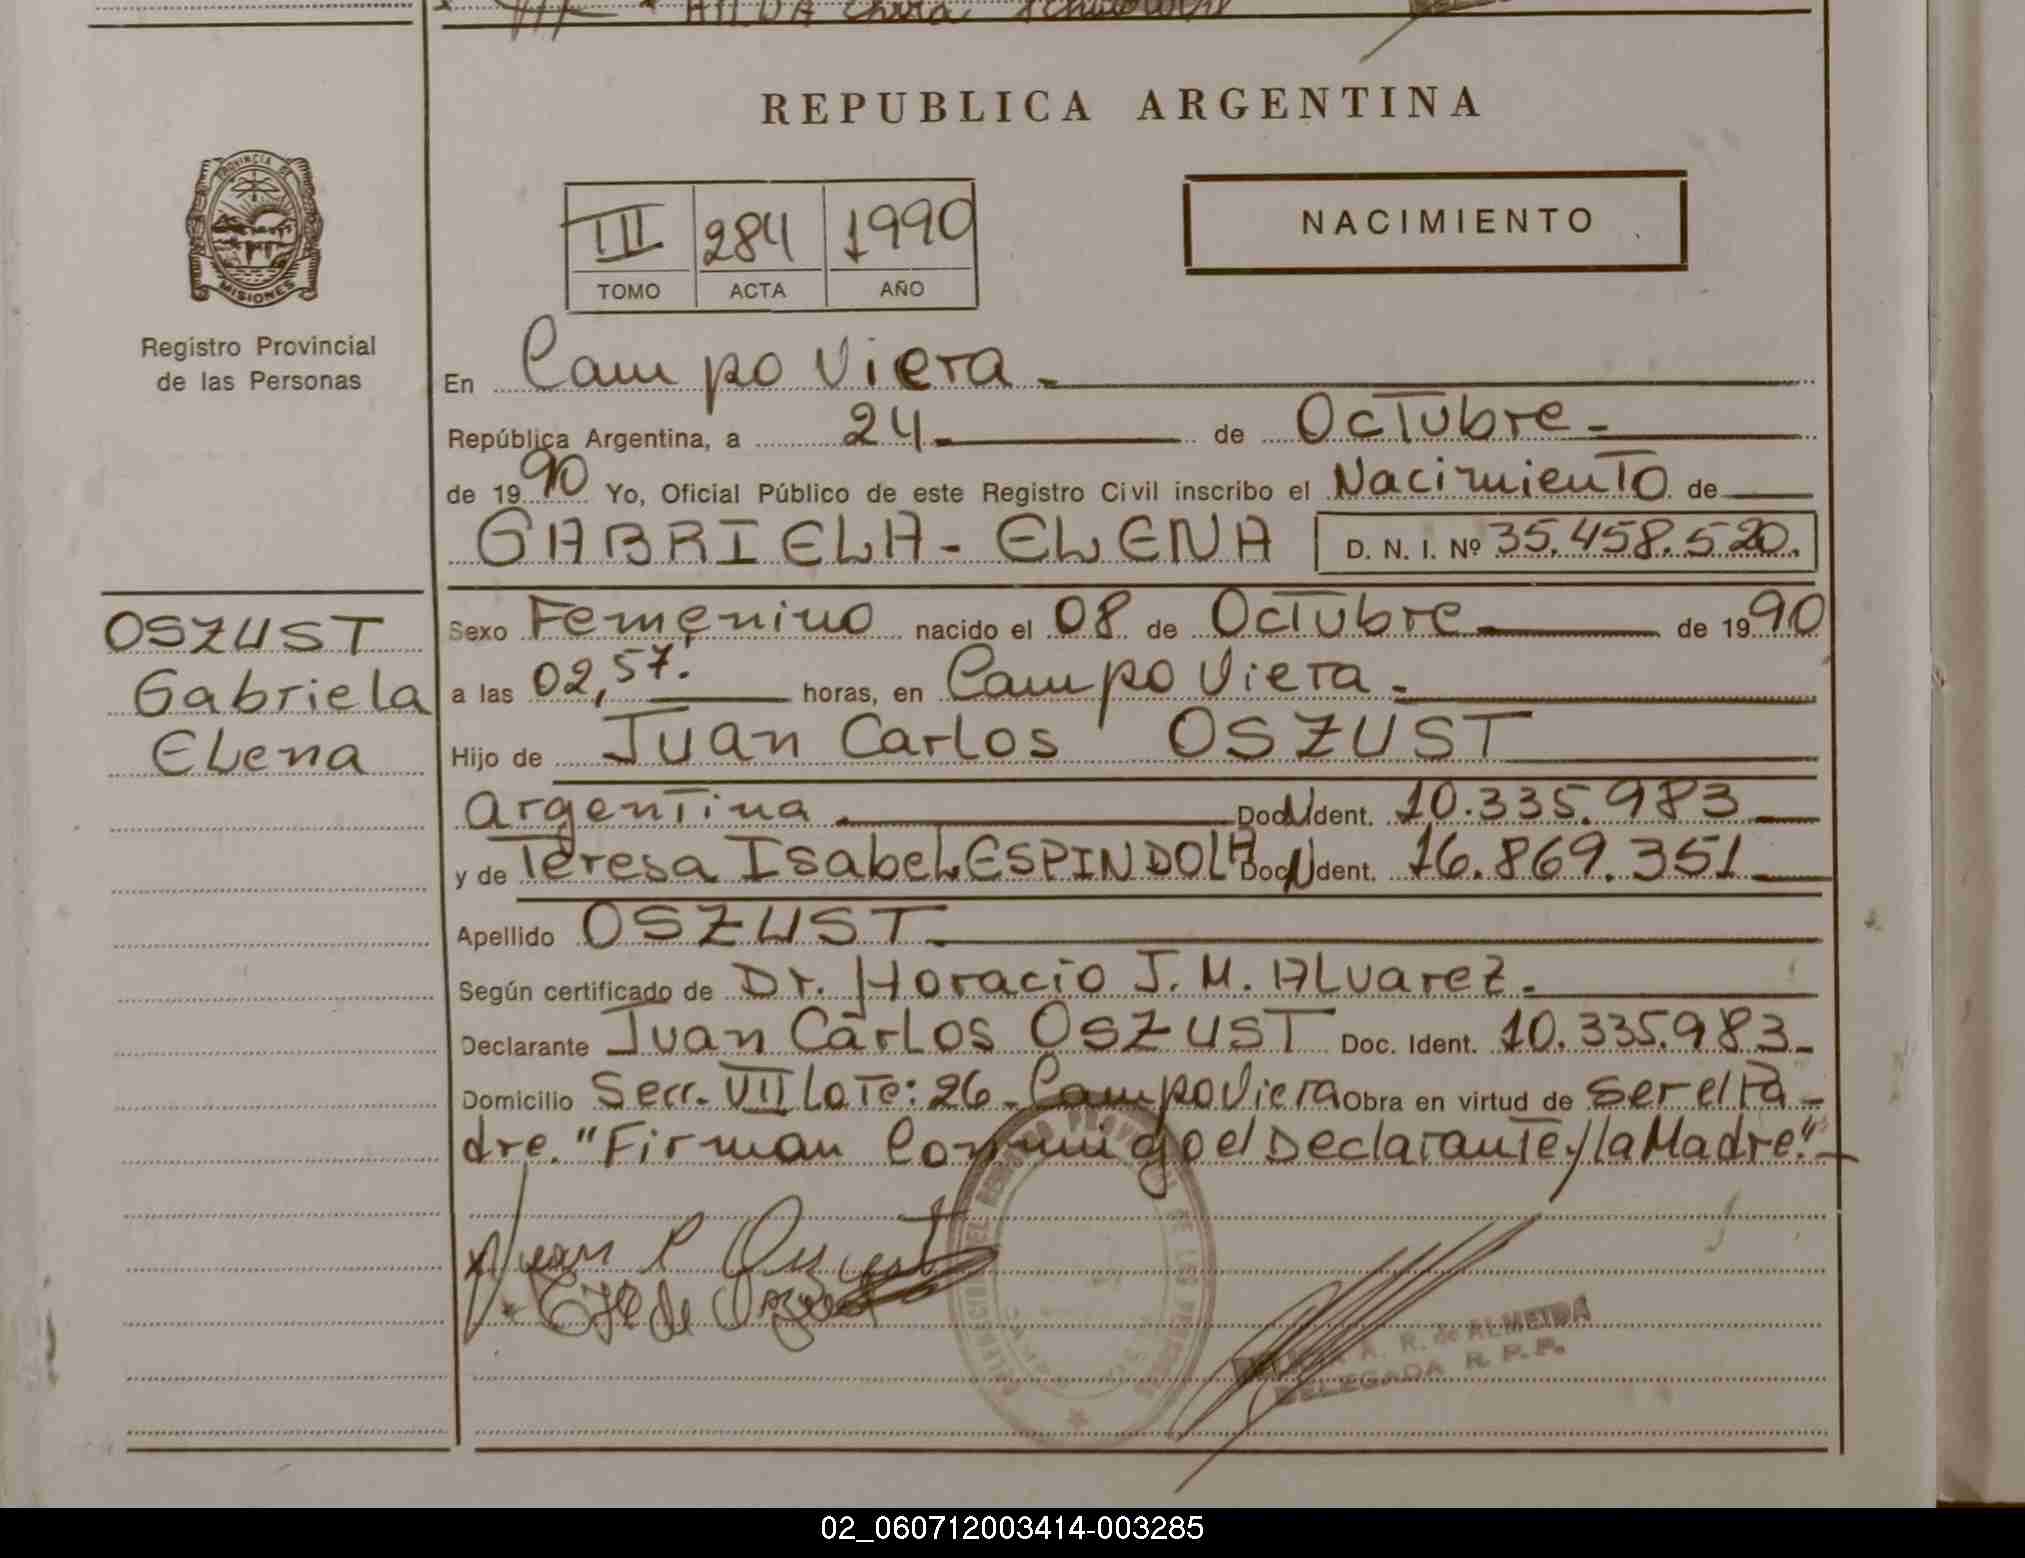 REPUBLICA ARGENTINA
PROVINCIA DE
MISIONES
Registro Provincial
de las Personas
III 284 1990
TOMO ACTA AÑO
NACIMIENTO
En Campo Viera.
República Argentina, a 24 de Octubre.
de 1990 Yo, Oficial Público de este Registro Civil inscribo el Nacimiento de
GABRIELA - ELENA D. N. I. Nº 35.458.520.
OSZUST
Gabriela
Elena
Sexo Femenino nacido el 08 de Octubre de 1990
a las 02,57. horas, en Campo Viera.
Hijo de Juan Carlos OSZUST
Argentina Doc. Ident. 10.335.983
y de Teresa Isabel ESPINDOLA Doc. Ident. 16.869.351
Apellido OSZUST
Según certificado de Dr. Horacio J. M. Alvarez.
Declarante Juan Carlos OSZUST Doc. Ident. 10.335.983
Domicilio Secc. VII Lote: 26 - Campo Viera Obra en virtud de ser el Pa-
dre. "Firman Conmigo el Declarante y la Madre".
Juan C Oszust
de Oszust
A. R. de ALMEIDA
DELEGADA R. P. P.
02_060712003414-003285